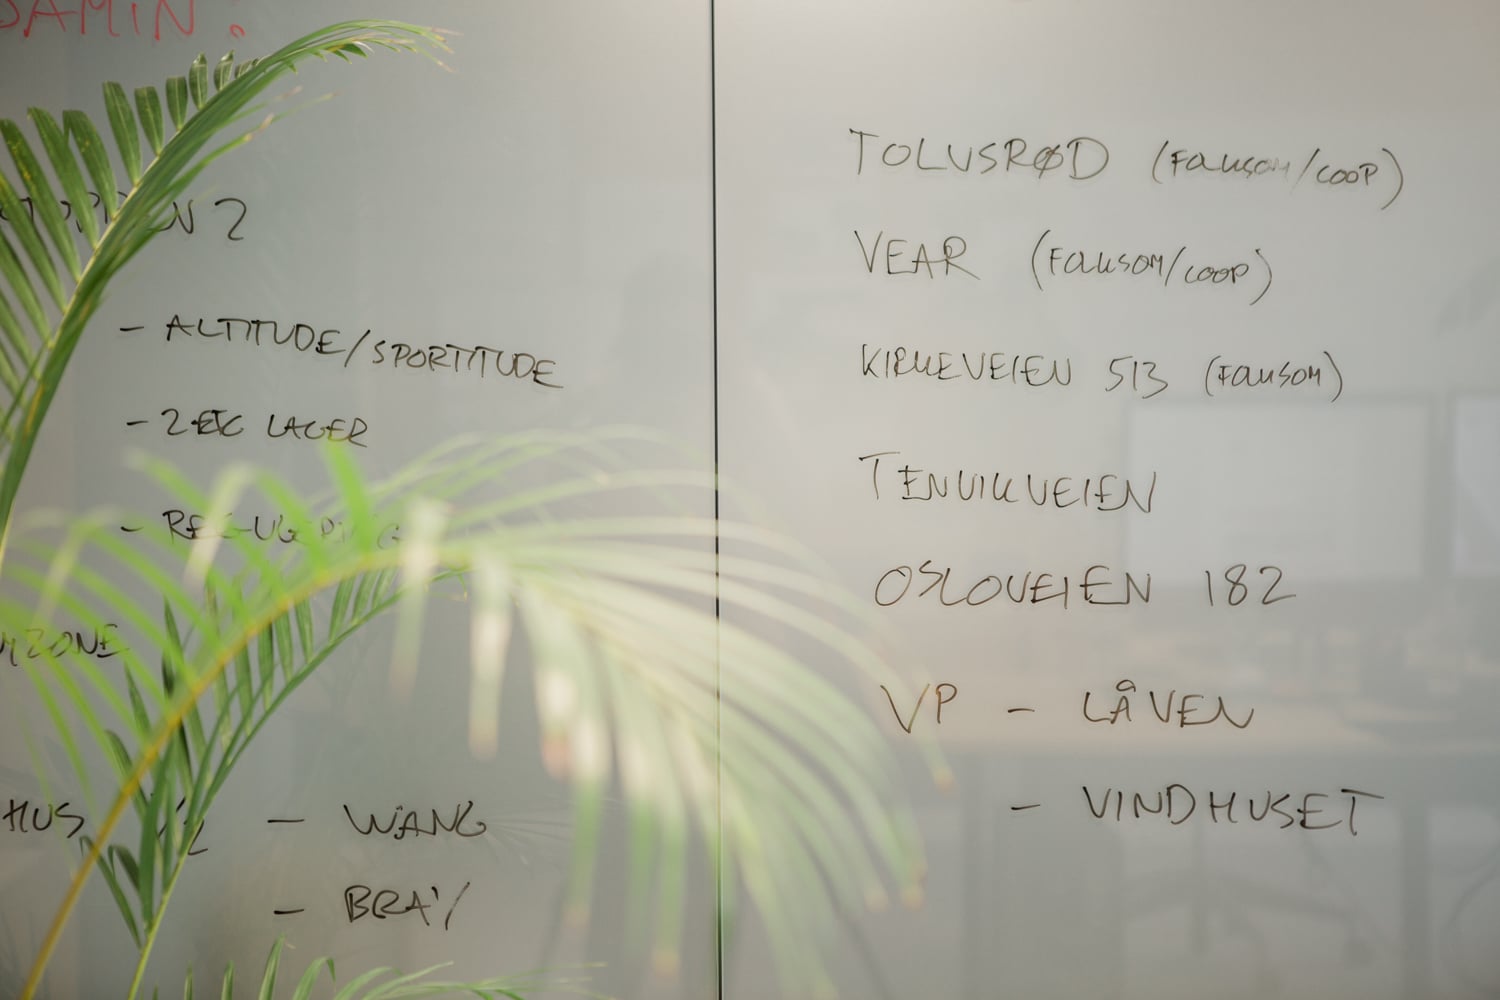 - ALTITUDE/SPORTITUDE
- 2 ETC LAGER
HUS
- WANG
- BRA'/
TOLUSRØD (FOLKSOM/COOP)
VEAR (FOLKSOM/COOP)
KIRKEVEIEN 513 (FOLKSOM)
TENVIKVEIEN
OSLOVEIEN 182
VP - LÅVEN
- VINDHUSET